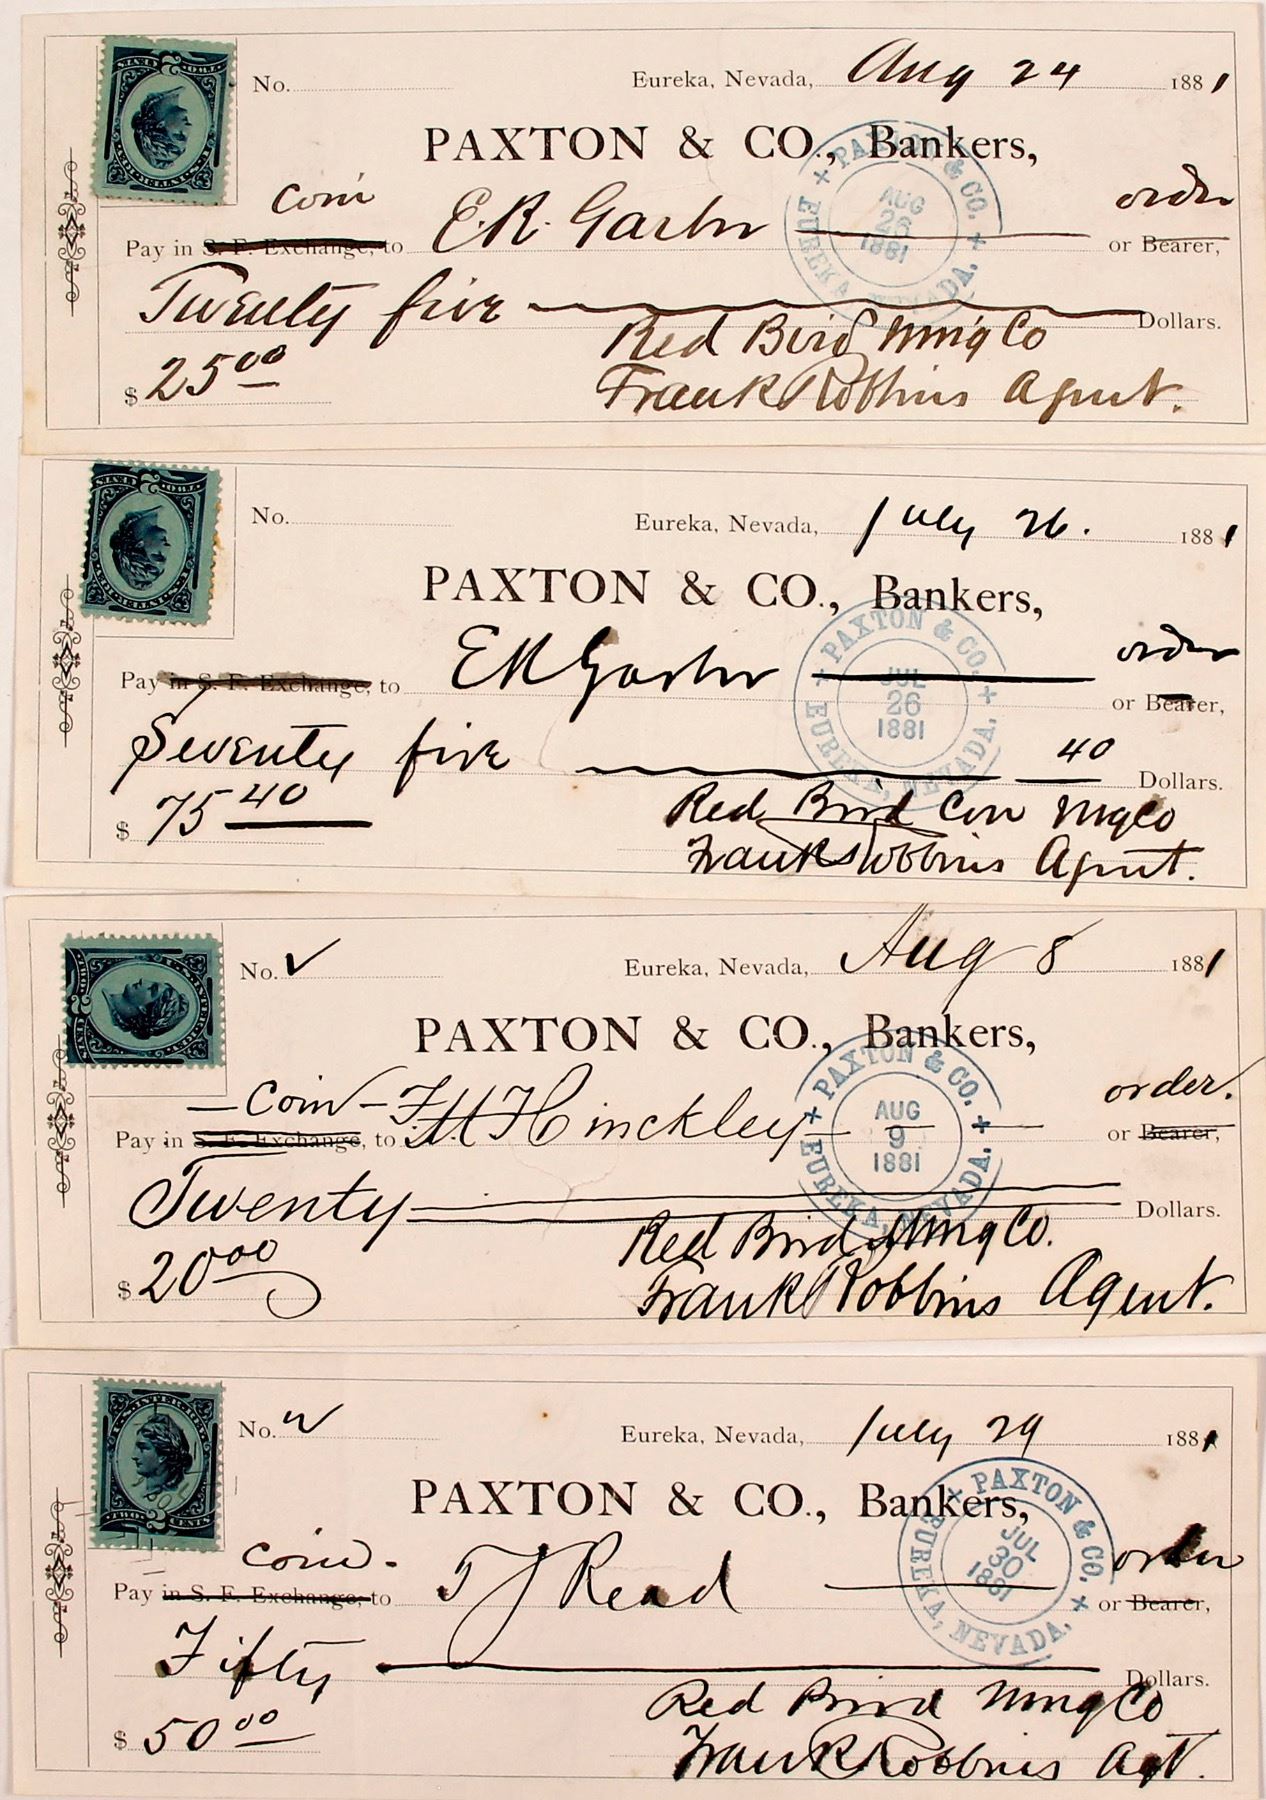 No. Eureka, Nevada, Aug 24 1881
PAXTON & CO., Bankers,
coin order
Pay in S. F. Exchange, to E.R. Garbr or Bearer,
Twenty five Dollars.
Red Bird Mng Co
$ 25 00
Frank Robbins Agent.
PAXTON & CO. EUREKA, NEVADA.
AUG
26
1881
TWO 2 CENTS
No. Eureka, Nevada, July 26. 1881
PAXTON & CO., Bankers,
order
Pay in S. F. Exchange, to E R Garbr or Bearer,
Seventy five 40 Dollars.
$ 75 40
Red Bird Con Mg Co
Frank Robbins Agent.
PAXTON & CO. EUREKA, NEVADA.
JUL
26
1881
TWO 2 CENTS
No. Eureka, Nevada, Aug 8 1881
PAXTON & CO., Bankers,
coin order.
Pay in S. F. Exchange, to F. M. Hinckley or Bearer,
Twenty Dollars.
Red Bird Mng Co.
$ 20 00
Frank Robbins Agent.
PAXTON & CO. EUREKA, NEVADA.
AUG
9
1881
2
No. Eureka, Nevada, July 29 1881
PAXTON & CO., Bankers,
coin order
Pay in S. F. Exchange, to T J Read or Bearer,
Fifty Dollars.
Red Bird Mng Co
$ 50 00
Frank Robbins Agt.
PAXTON & CO. EUREKA, NEVADA.
JUL
30
1881
U.S. INTER. REV.
TWO 2 CENTS